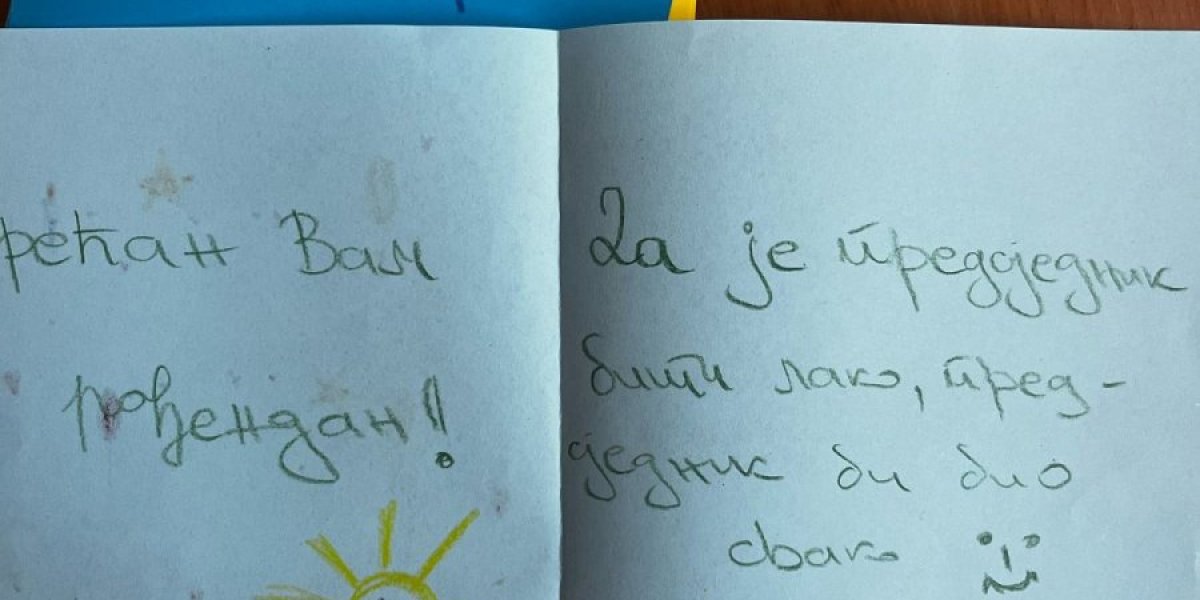 рећан Вам
рођендан!
Да је предсједник
бити лако, пред-
сједник би био
свако